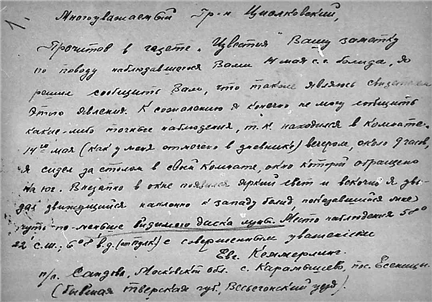 1
Многоуважаемый Гр-н Циолковский,
Прочитав в газете "Известия" Вашу заметку
по поводу наблюдавшегося Вами 14 мая с.г. болида, я
решил сообщить Вам, что также являюсь свидетелем
этого явления. К сожалению я ничего не могу сообщить
какие-либо точные наблюдения, т.к. находился в комнате.
14го мая (как у меня отмечено в дневнике) вечером, около 9 часов,
я сидел за столом в своей комнате, окно которой обращено
на юг. Внезапно в окне появился яркий свет и вскочив я уви-
дал движущийся наклонно к западу болид, показавшийся мне
чуть по-меньше видимого диска луны. Место наблюдения 58°
22 с.ш. 6°
с совершенным уважением
Евг. Коммерлинг
п/о. Сандово, Московской обл. с. Карамышево,
(бывшая Тверская губ, Весьегонский уезд).